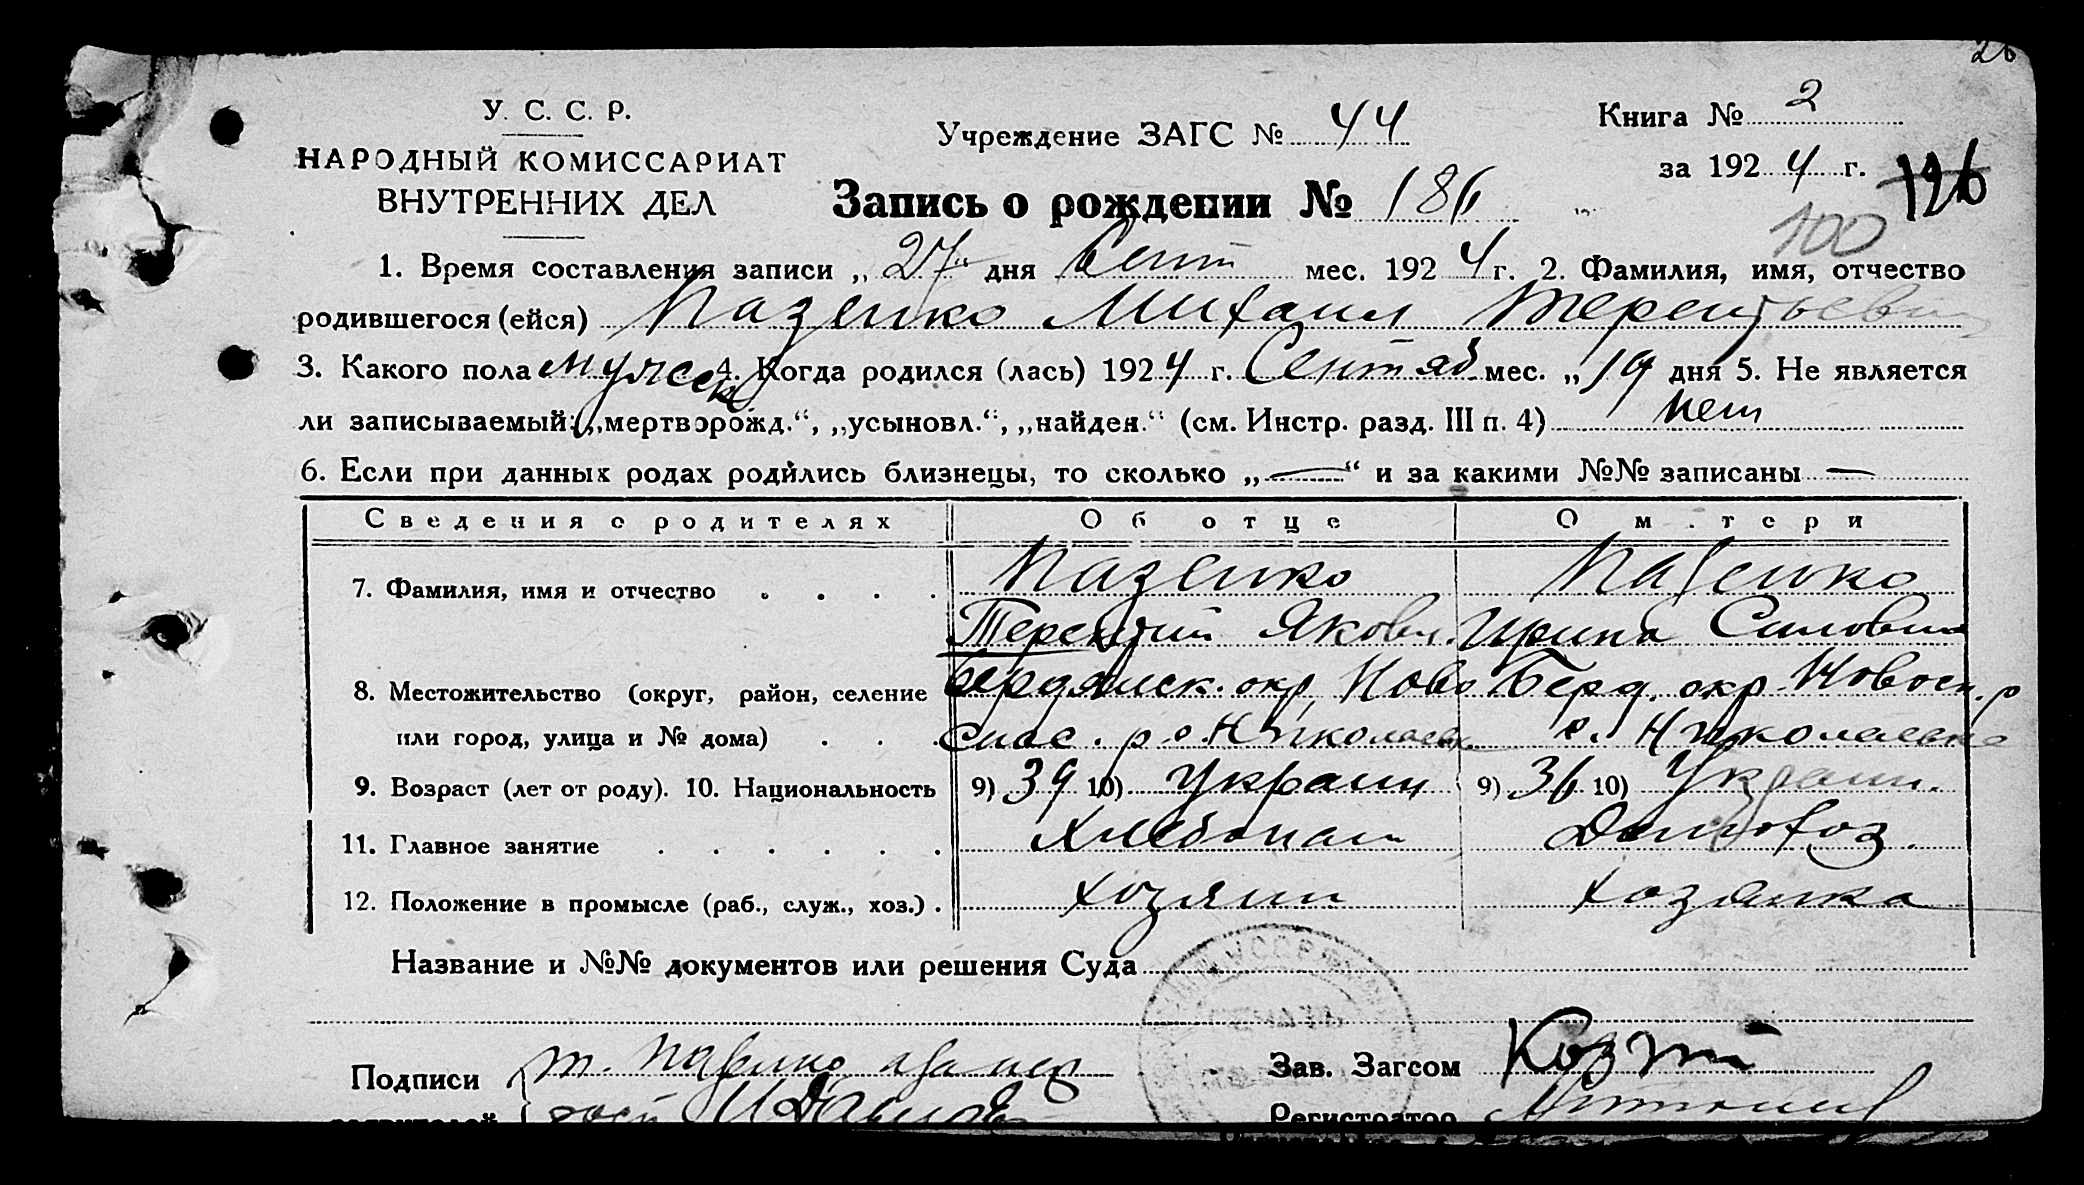 26
У. С. С. Р.
НАРОДНЫЙ КОМИССАРИАТ
ВНУТРЕННИХ ДЕЛ
Учреждение ЗАГС № 44
Книга № 2
за 1924 г.
126
100
Запись о рождении № 186
1. Время составления записи „27“ дня Сент мес. 1924 г. 2. Фамилия, имя, отчество
родившегося (ейся) Пазенко Михаил Терентьевич
3. Какого пола мужск 4. Когда родился (лась) 1924 г. Сентяб мес. „19 дня 5. Не является
ли записываемый: „мертворожд.“, „усыновл.“, „найден.“ (см. Инстр. разд. III п. 4) нет
6. Если при данных родах родились близнецы, то сколько „—“ и за какими №№ записаны —
Сведения о родителях Об отце О м.тери
7. Фамилия, имя и отчество Пазенко Пазенко
Терентий Яковл. Ирина Силовна
8. Местожительство (округ, район, селение Бердянск. окр, Ново Берд. окр. Новосп. р
или город, улица и № дома) Спас. р с Николаевка с. Николаевка
9. Возраст (лет от роду). 10. Национальность 9) 39 10) Украин 9) 36 10) Украин.
11. Главное занятие Хлебопаш Домохоз.
12. Положение в промысле (раб., служ., хоз.) хозяин хозяйка
Название и №№ документов или решения Суда
Подписи Т. Пазенко
Зав. Загсом
Регистратор